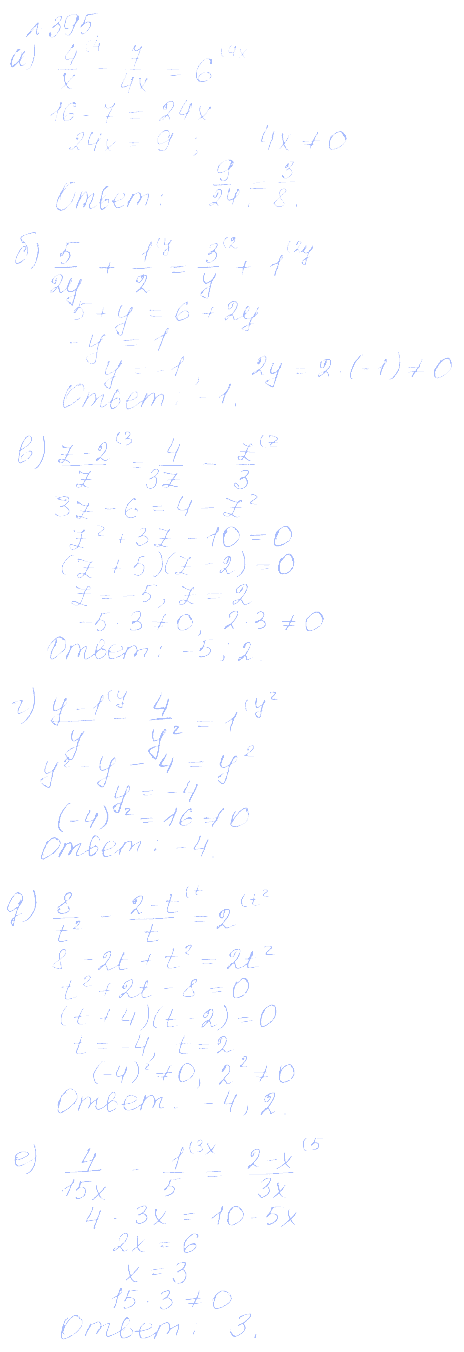 n 395
а) 4/x (4 - 7/4x = 6 (4x
16 - 7 = 24x
24x = 9 ; 4x ≠ 0
Ответ: 9/24 = 3/8.
б) 5/2y + 1/2 (y = 3/y (2 + 1 (2y
5 + y = 6 + 2y
-y = 1
y = -1, 2y = 2·(-1) ≠ 0
Ответ: -1.
в) z-2/z (3 = 4/3z - z/3 (z
3z - 6 = 4 - z²
z² + 3z - 10 = 0
(z + 5)(z - 2) = 0
z = -5; z = 2
-5·3 ≠ 0, 2·3 ≠ 0
Ответ: -5; 2
г) y-1/y (y - 4/y² = 1 (y²
y² - y - 4 = y²
y = -4
(-4)² = 16 ≠ 0
Ответ: -4.
д) 8/t² - 2-t/t (t = 2 (t²
8 - 2t + t² = 2t²
t² + 2t - 8 = 0
(t + 4)(t - 2) = 0
t = -4, t = 2
(-4)² ≠ 0, 2² ≠ 0
Ответ: -4, 2.
е) 4/15x - 1/5 (3x = 2-x/3x (5
4 - 3x = 10 - 5x
2x = 6
x = 3
15·3 ≠ 0
Ответ: 3.